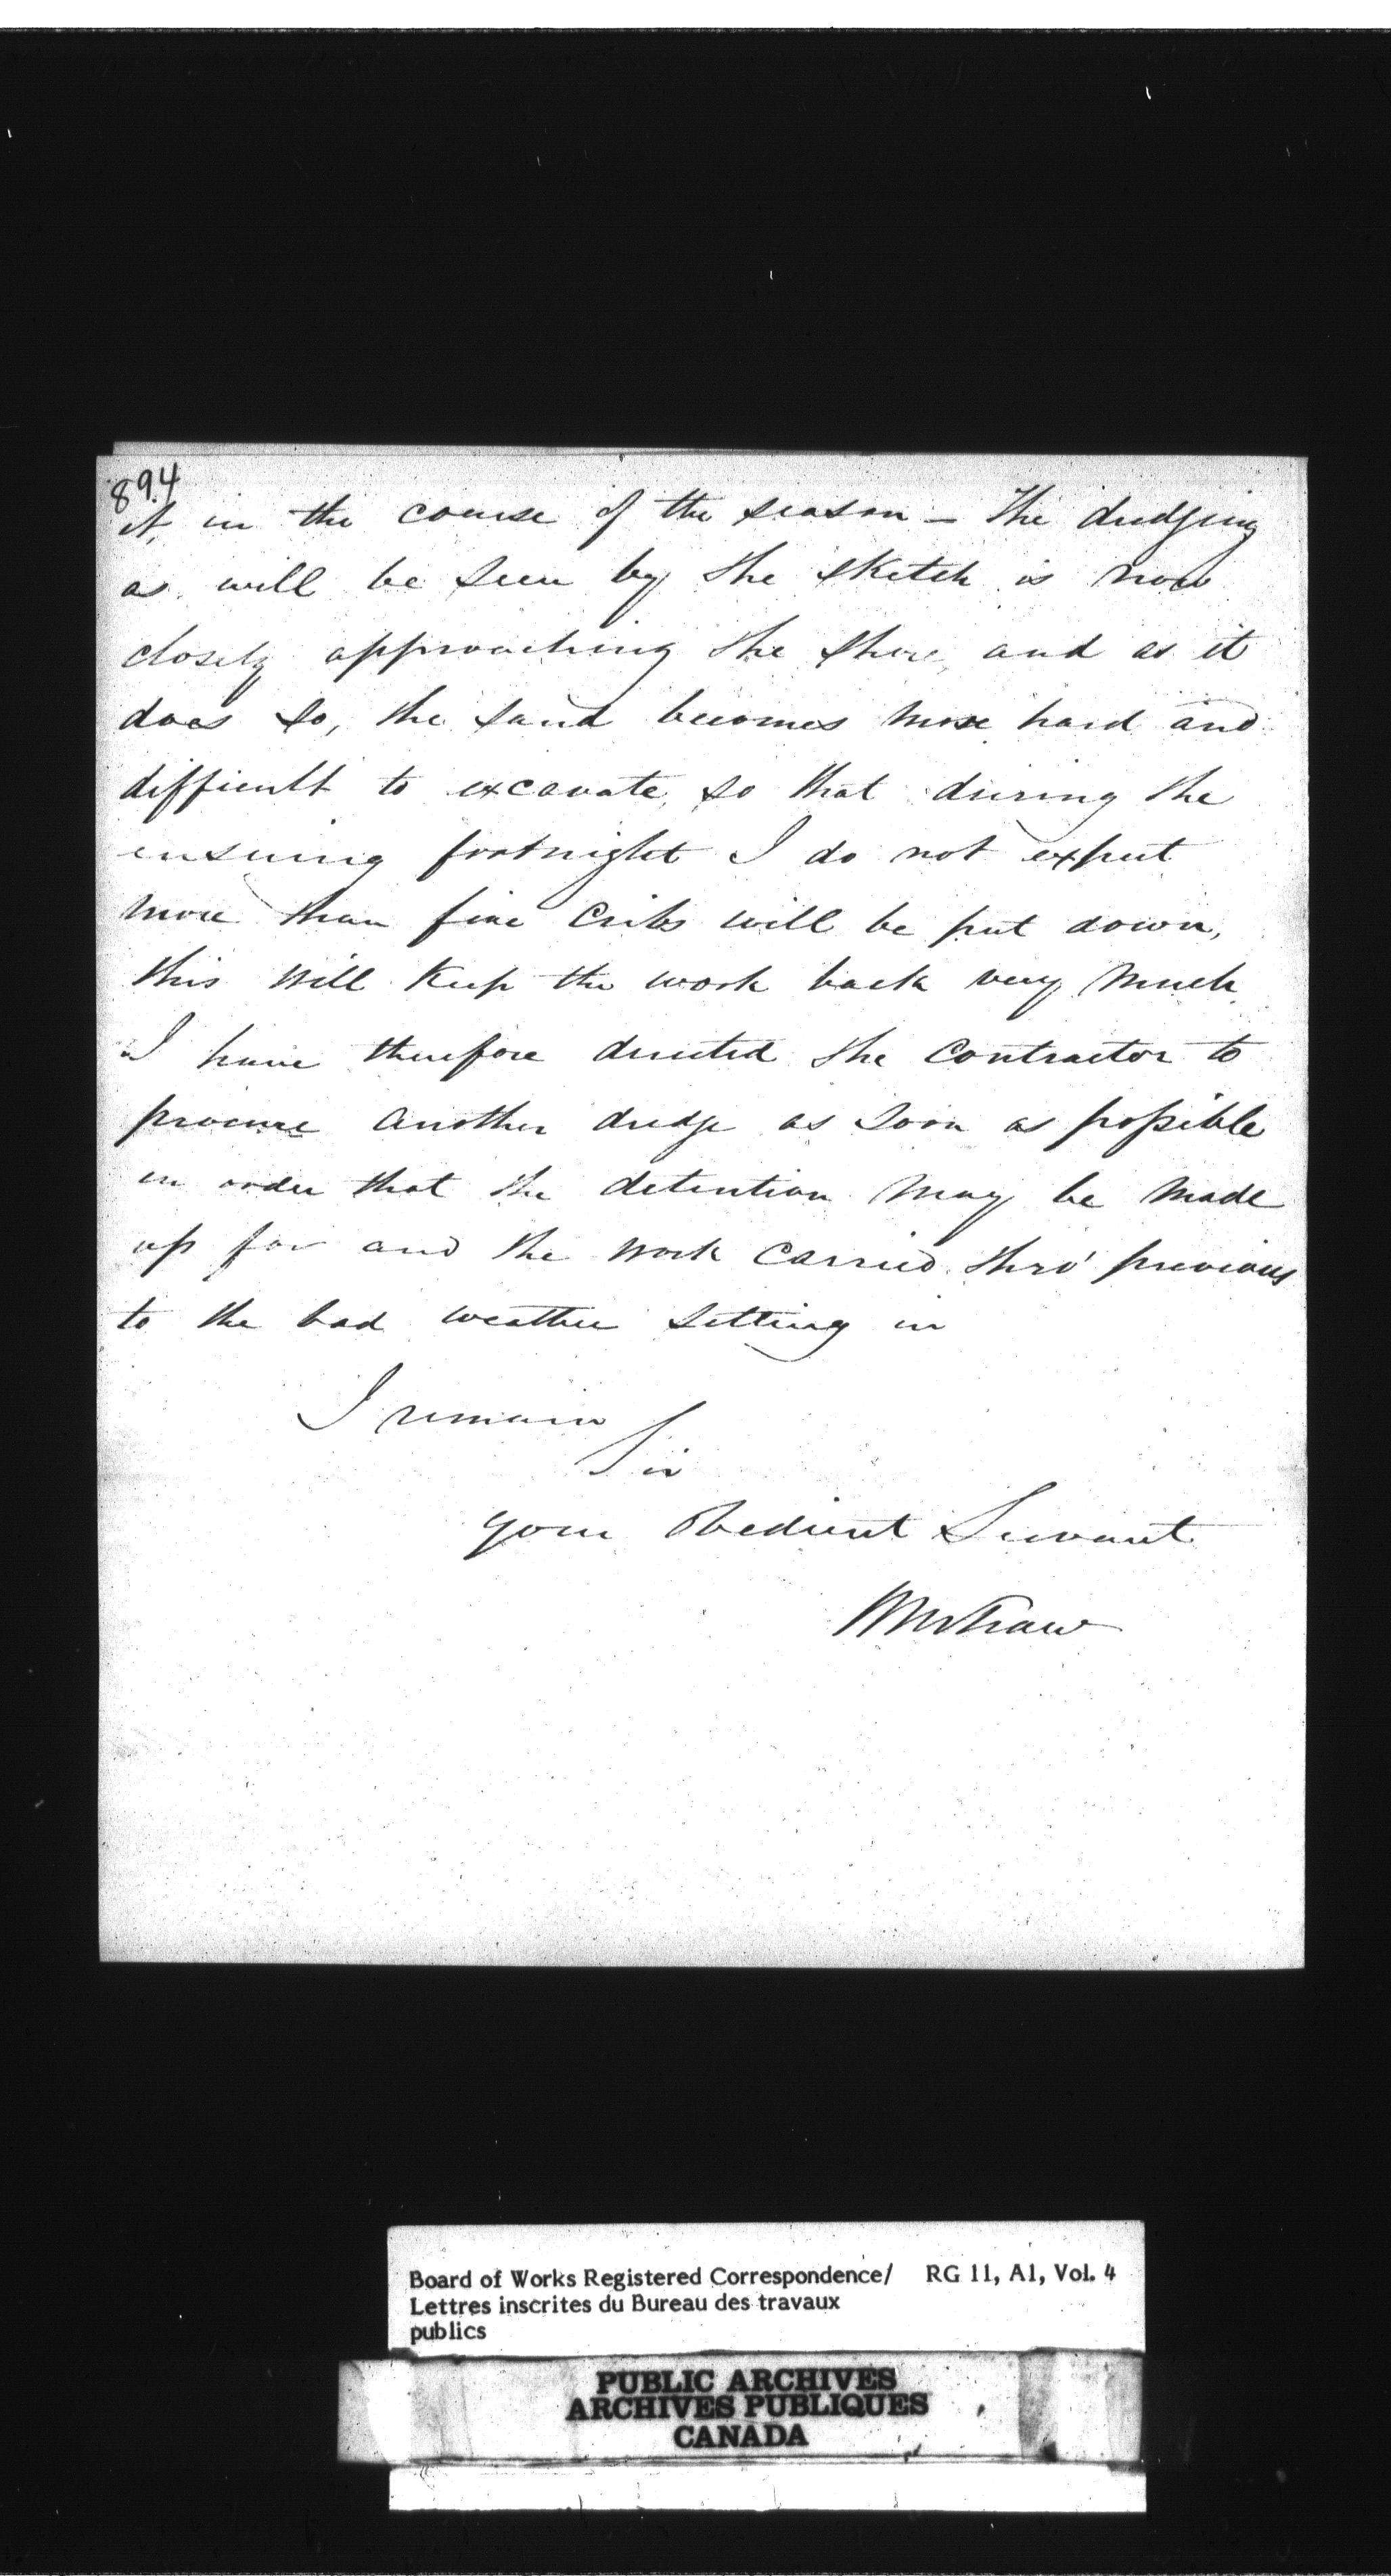 894
it, in the course of the season – The dredging
as will be seen by the sketch is now
closely approaching the shore, and as it
does so, the sand becomes more hard and
difficult to excavate, so that during the
ensuing fortnight I do not expect
more than five Cribs will be put down,
this will keep the work back very much
I have therefore directed the Contractor to
procure another dredge as soon as possible
in order that the detention may be made
up for and the work carried thro' previous
to the bad weather setting in
I remain
Sir
your Obedient Servant
Board of Works Registered Correspondence/ RG 11, A1, Vol. 4
Lettres inscrites du Bureau des travaux
publics
PUBLIC ARCHIVES
ARCHIVES PUBLIQUES
CANADA